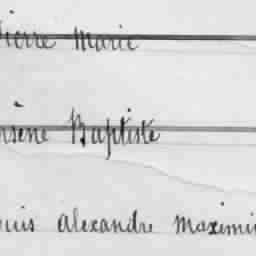 Pierre Marie
Arsène Baptiste
Louis Alexandre Maximin